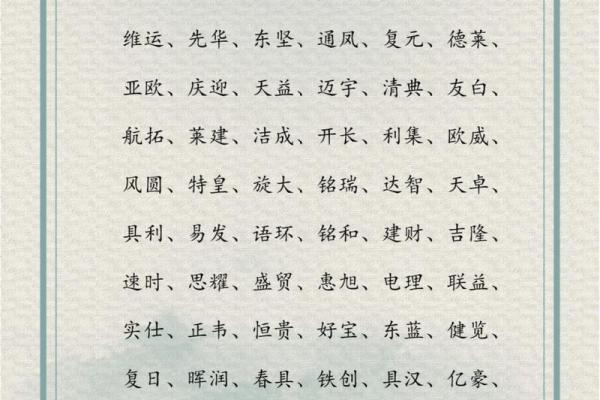 维运、先华、东坚、通凤、复元、德莱、
亚欧、庆迎、天益、迈宇、清典、友白、
航拓、莱建、洁成、开长、利集、欧威、
风圆、特皇、旋大、铭瑞、达智、天卓、
具利、易发、语环、铭和、建财、吉隆、
速时、思耀、盛贸、惠旭、电理、联益、
实仕、正韦、恒贵、好宝、东蓝、健览、
复日、晖润、春具、铁创、具汉、亿豪、